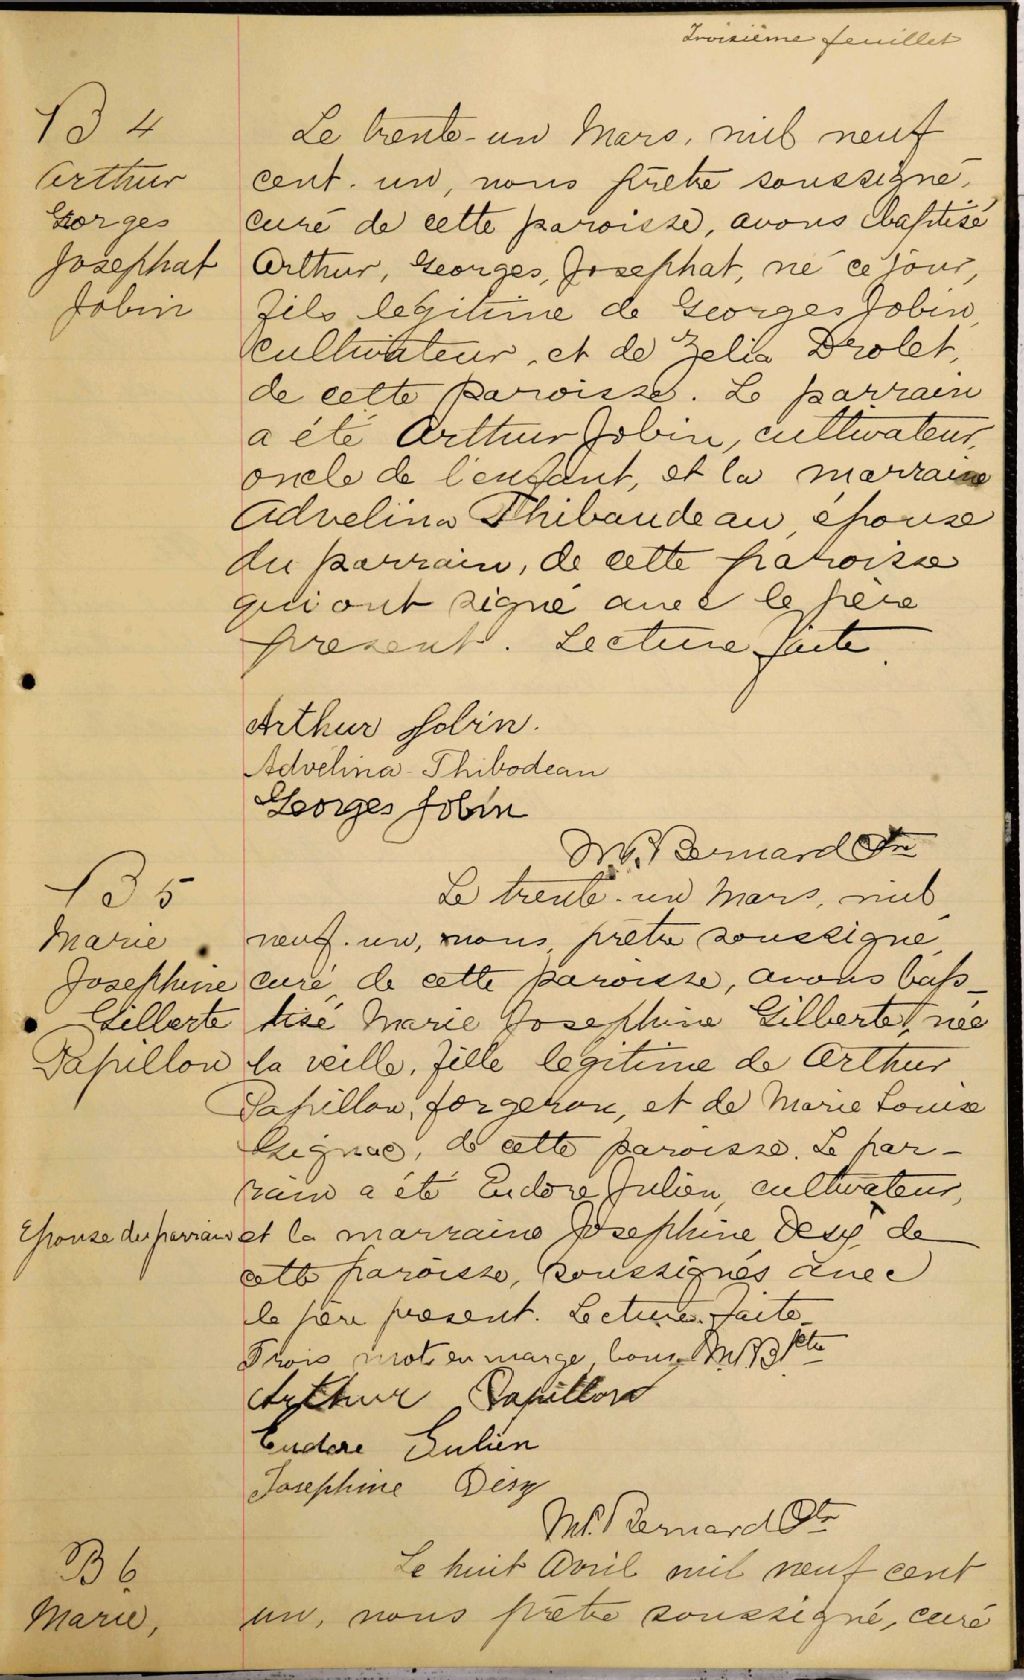 Troisième feuillet
B 4
Arthur
Georges
Josephat
Jobin
Le trente-un Mars, mil neuf
cent. un, nous prêtre soussigné,
curé de cette paroisse, avons baptisé
Arthur, Georges, Josephat, né ce jour,
fils legitime de Georges Jobin,
cultivateur, et de Zelia Drolet,
de cette paroisse. Le parrain
a été Arthur Jobin, cultivateur,
oncle de l'enfant, et la marraine
Advelina Thibaudeau, épouse
du parrain, de cette paroisse
qui ont signé avec le père
present. Lecture faite.
Arthur Jobin.
Advélina Thibodeau
Georges Jobin
M.P. Bernard Ptre
B 5
Marie
Josephine
Gilberte
Papillon
Le trente-un Mars, mil
neuf. un, nous, prêtre soussigné,
curé de cette paroisse, avons bap-
tisé Marie Josephine Gilberte, née
la veille, fille legitime de Arthur
Papillon, forgeron, et de Marie Louise
Gignac, de cette paroisse. Le par-
rain a été Eudore Julien, cultivateur,
Epouse du parrain
et la marraine Josephine Desy, de
cette paroisse, soussignés avec
le père present. Lecture faite.
Trois mots en marge, bons M.P.B ptre
Arthur Papillon
Eudore Julien
Josephine Désy
M.P. Bernard Ptr
B 6
Marie,
Le huit Avril mil neuf cent
un, nous prêtre soussigné, curé